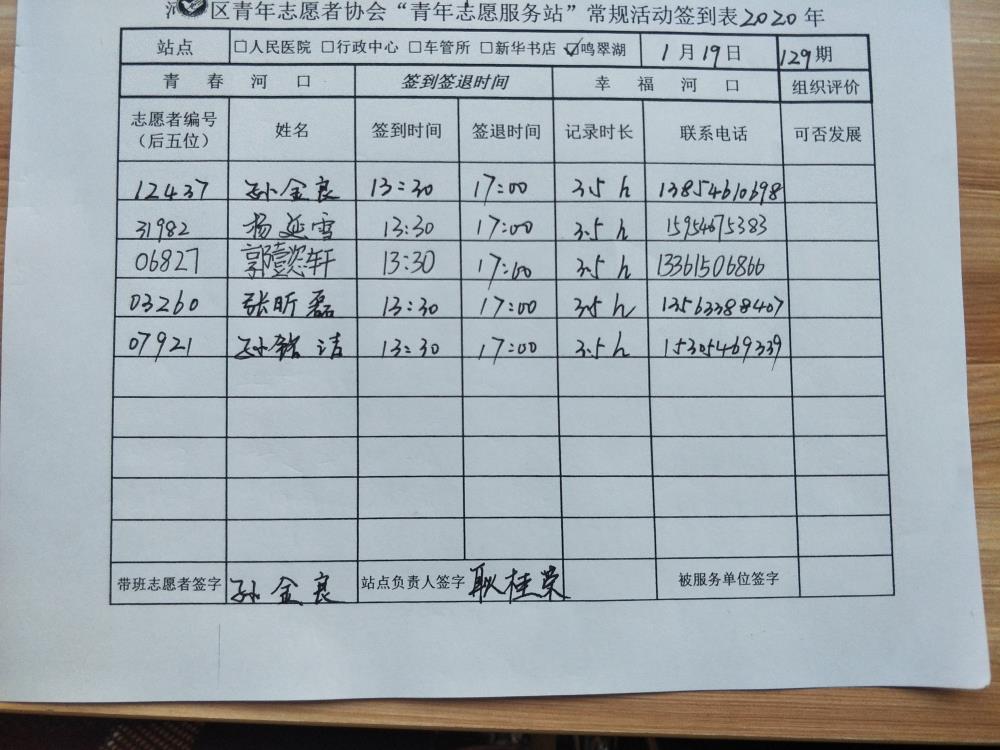 河口区青年志愿者协会“青年志愿服务站”常规活动签到表2020年
站点 □人民医院 □行政中心 □车管所 □新华书店 ☑鸣翠湖 1月19日 129期
青春河口 签到签退时间 幸福河口 组织评价
志愿者编号（后五位） 姓名 签到时间 签退时间 记录时长 联系电话 可否发展
12437 孙金良 13:30 17:00 3.5h 13854610698
31982 杨延雪 13:30 17:00 3.5h 15954675383
06827 郭懿轩 13:30 17:00 3.5h 13361506866
03260 张昕磊 13:30 17:00 3.5h 13563388407
07921 孙铭洁 13:30 17:00 3.5h 15305469339
带班志愿者签字 孙金良 站点负责人签字 耿桂荣 被服务单位签字